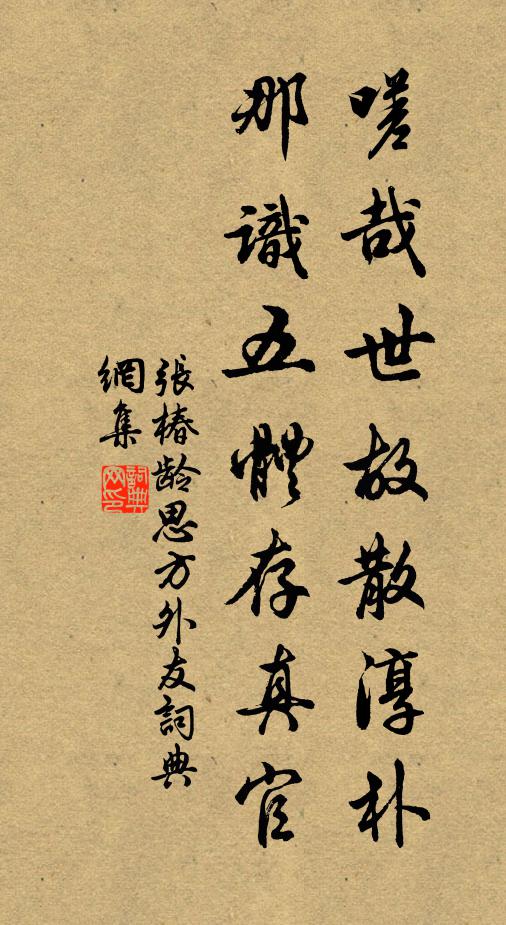 嗟哉世故散淳朴
那識五體存真官
張椿龄思方外友詞典
網集
詞典
网